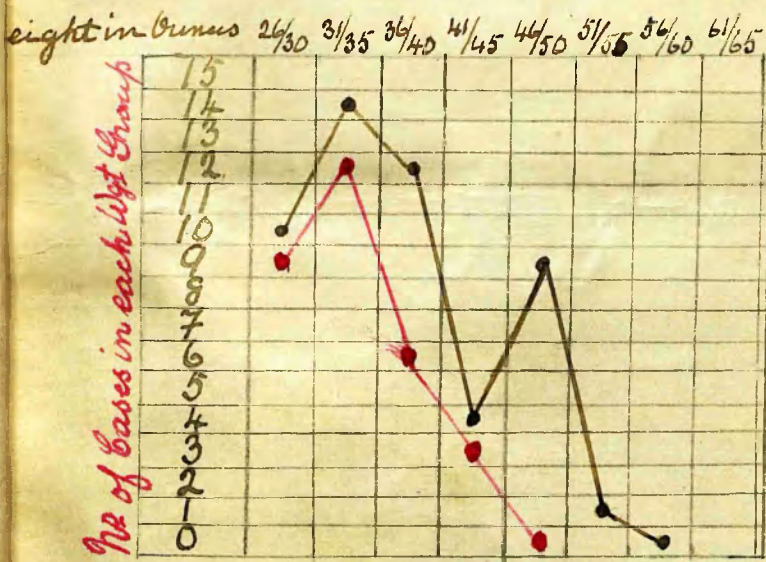 eight in Ounces 26/30 31/35 36/40 41/45 46/50 51/55 56/60 61/65
No of Cases in each Wgt Group
15
14
13
12
11
10
9
8
7
6
5
4
3
2
1
0